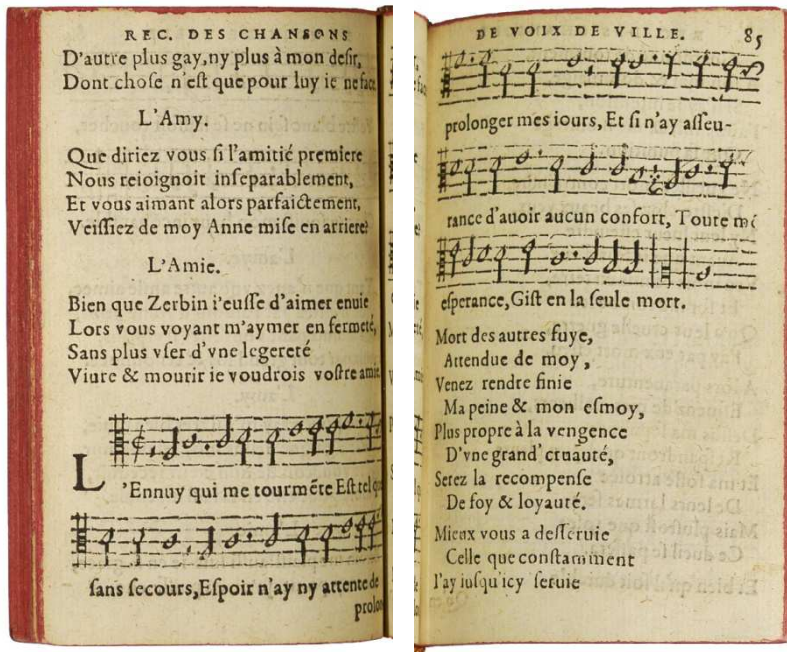 REC. DES CHANSONS
D'autre plus gay, ny plus à mon desir,
Dont chose n'est que pour luy ie ne face
L'Amy.
Que diriez vous si l'amitié premiere
Nous reioignoit inseparablement,
Et vous aimant alors parfaictement,
Veissiez de moy Anne mise en arriere?
L'Amie.
Bien que Zerbin i'eusse d'aimer enuie
Lors vous voyant m'aymer en fermeté,
Sans plus vser d'vne legereté
Viure & mourir ie voudrois vostre amie
L'Ennuy qui me tourmẽte Est tel que
sans secours, Espoir n'ay ny attente de
prolon
DE VOIX DE VILLE. 85
prolonger mes iours, Et si n'ay asseu-
rance d'auoir aucun confort, Toute mõ
esperance, Gist en la seule mort.
Mort des autres fuye,
Attendue de moy,
Venez rendre finie
Ma peine & mon esmoy,
Plus propre à la vengence
D'vne grand' cruauté,
Serez la recompense
De foy & loyauté.
Mieux vous a desseruie
Celle que constamment
I'ay iusqu'icy seruie